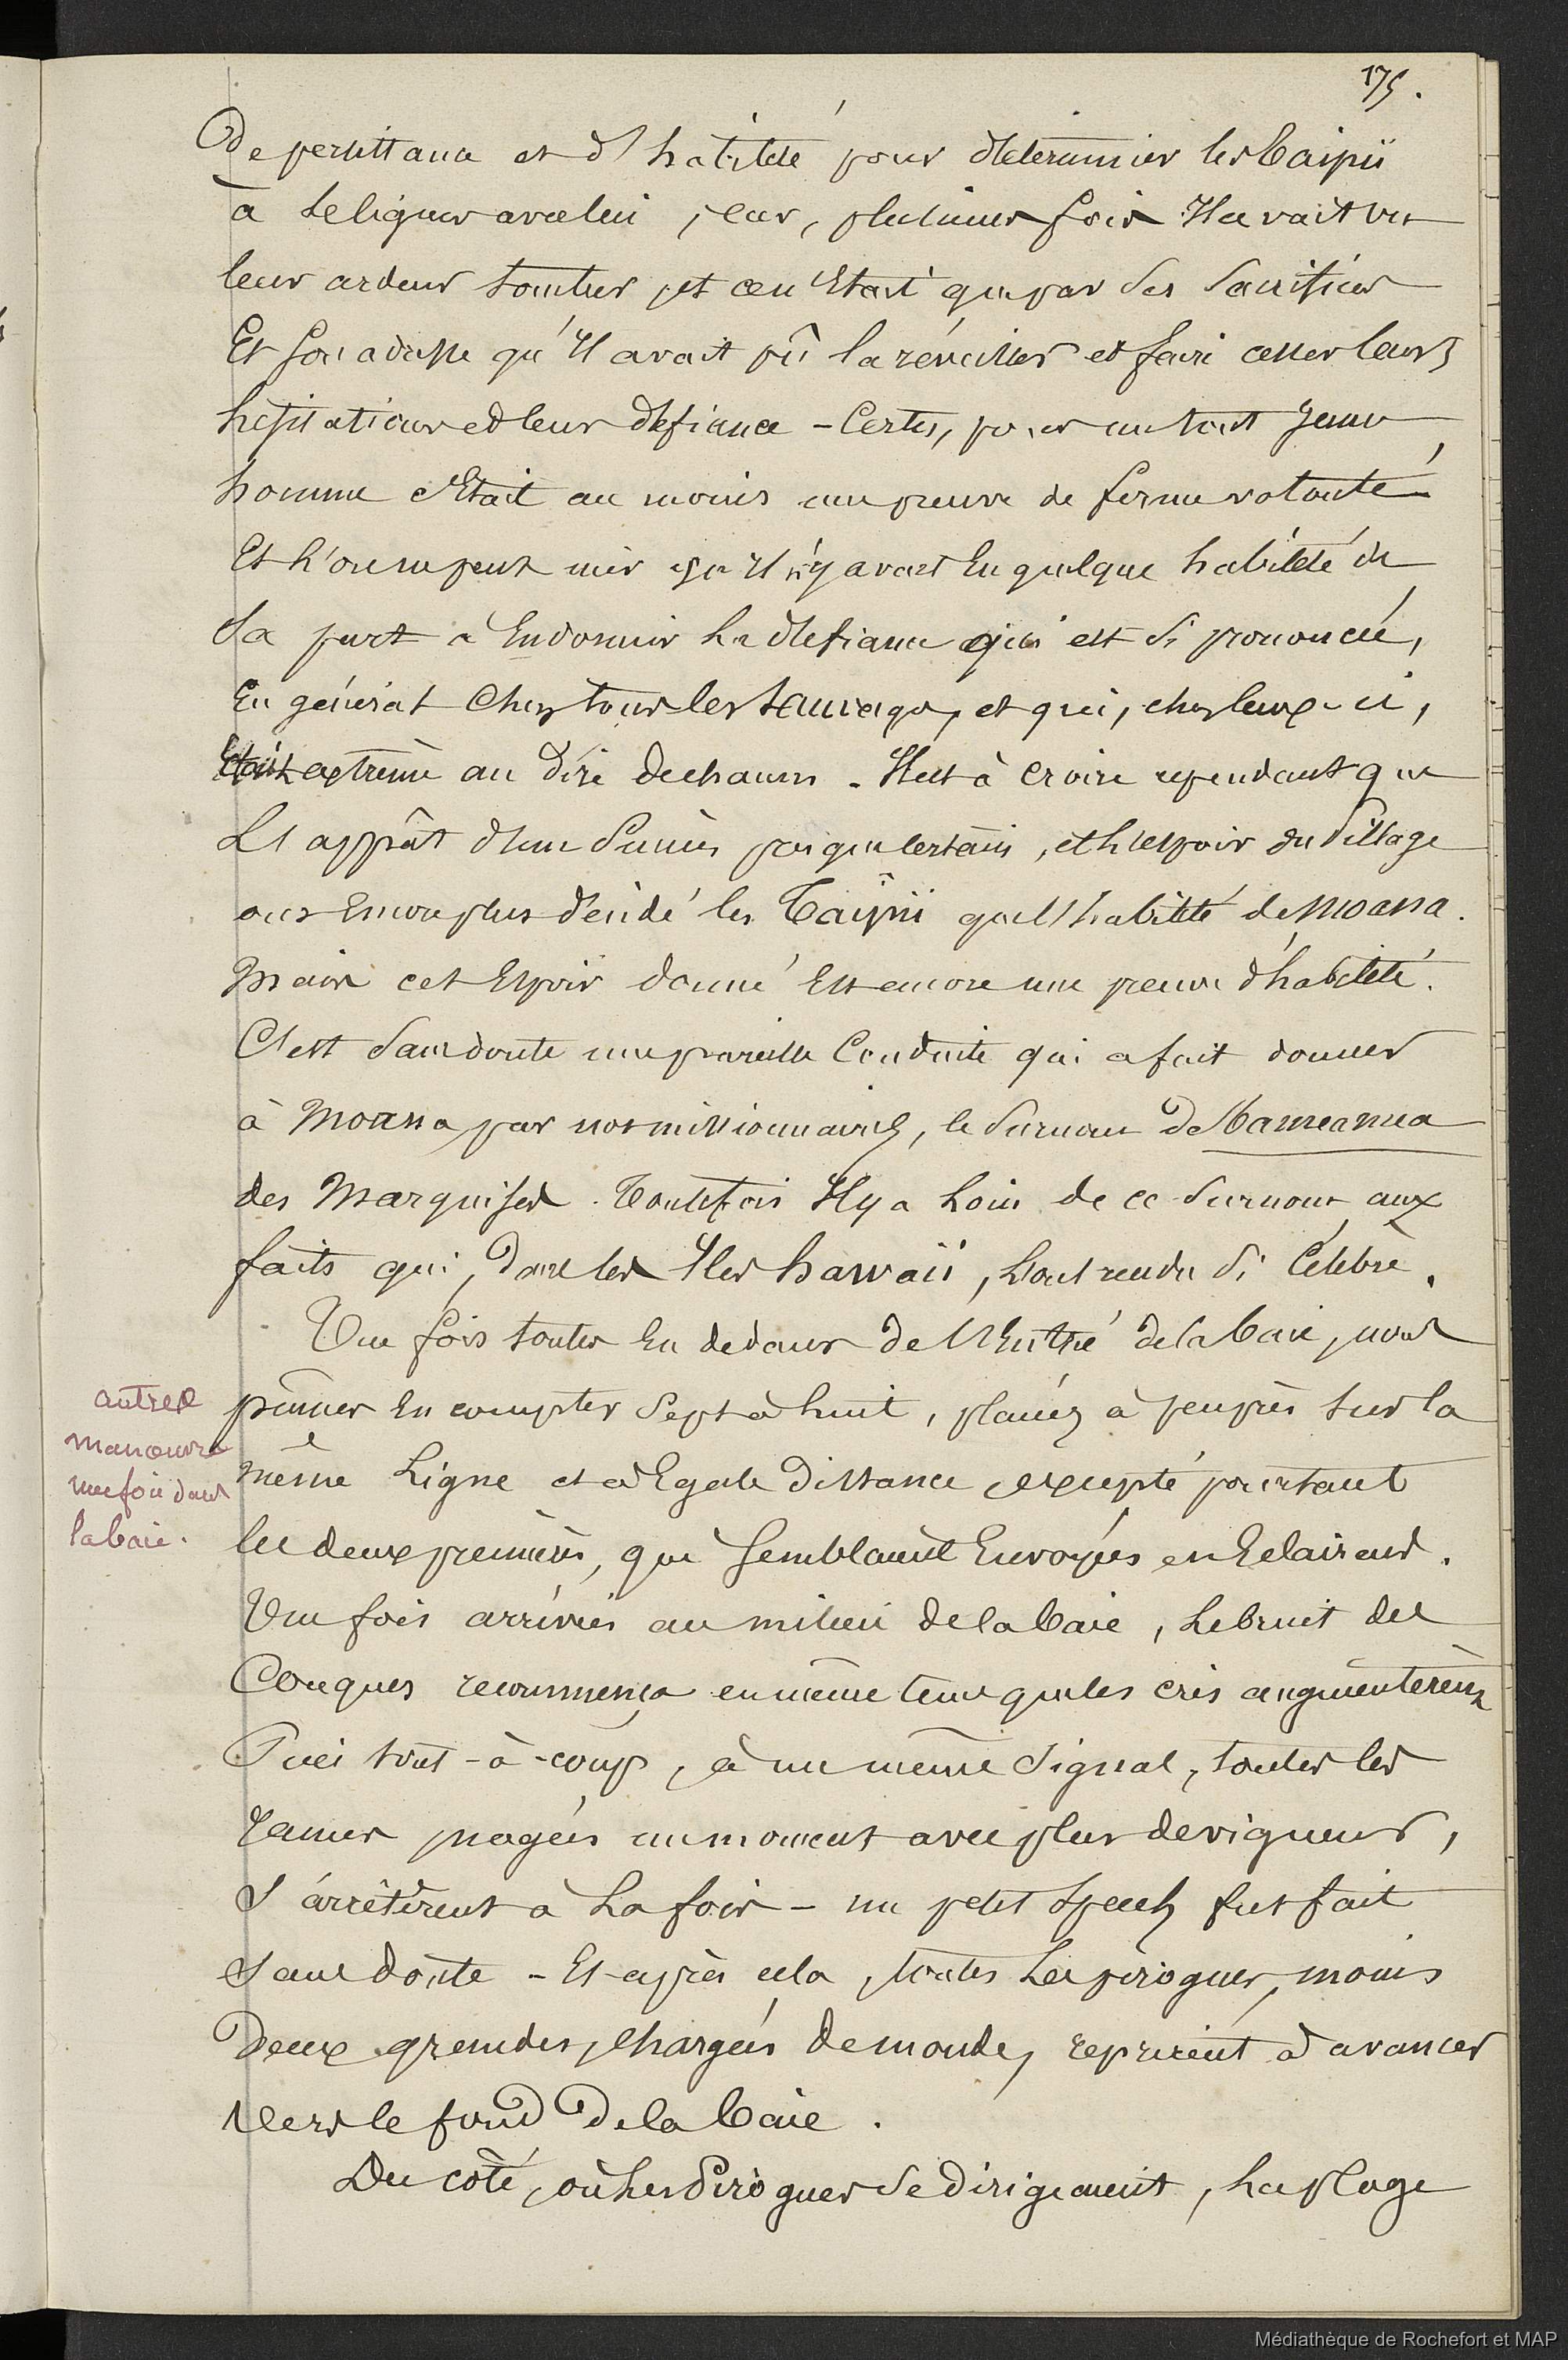 175.
De persistance et d'habileté pour déterminer les Taïpii
à se liguer avec lui, car, plusieurs fois Il avait vu
leur ardeur tomber et ce n'Etait que par des sacrifices
Et son adresse qu'Il avait pû la réveiller et faire cesser leurs
hésitations et leur défiance - Certes, pour un tout jeune
homme c'Etait au moins une preuve de ferme volonté
Et l'on ne peut nier qu'Il n'y avait Eu quelque habileté de
Sa part à Endormir la défiance qui est si prononcée,
En général chez tous les sauvages, et qui, chez ceux-ci,
Etait extrême au dire de chacun. Il est à croire cependant que
L'appât d'un Succès presque certain, et l'espoir du Pillage
ont Encore plus décidé les Taïpii que l'habileté de Moana.
Mais cet Espoir donné Est encore une preuve d'habileté.
C'est Sans doute une pareille Conduite qui a fait donner
à Moana par nos missionnaires, le Surnom de Tameamea
des Marquises. Toutefois Il y a Loin de ce Surnom aux
faits qui, dans les Iles hawaii, L'ont rendu Si Célèbre.
Une fois toutes En dedans de l'Entrée de la baie, nous
pûmes En compter Sept à huit, placées à peu près sur la
même Ligne et à Egale Distance, excepté pourtant
les deux premières, qui Semblaient Envoyées en Eclaireurs.
autres
manœuvre
une fois dans
la baie.
Une fois arrivées au milieu de la baie, Le bruit des
Conques recommença en même tems que les cris augmentèrent
Puis tout-à-coup, à un même Signal, toutes les
rames pagées un moment avec plus de vigueur,
S'arrêtèrent à La fois - un petit Speech fut fait
Sans doute - Et après cela, toutes Les pirogues, moins
Deux grandes, chargées de monde, reprirent à avancer
Vers le fond De la baie.
Du côté, où Les Pirogues Se Dirigeaient, La plage
Médiathèque de Rochefort et MAP